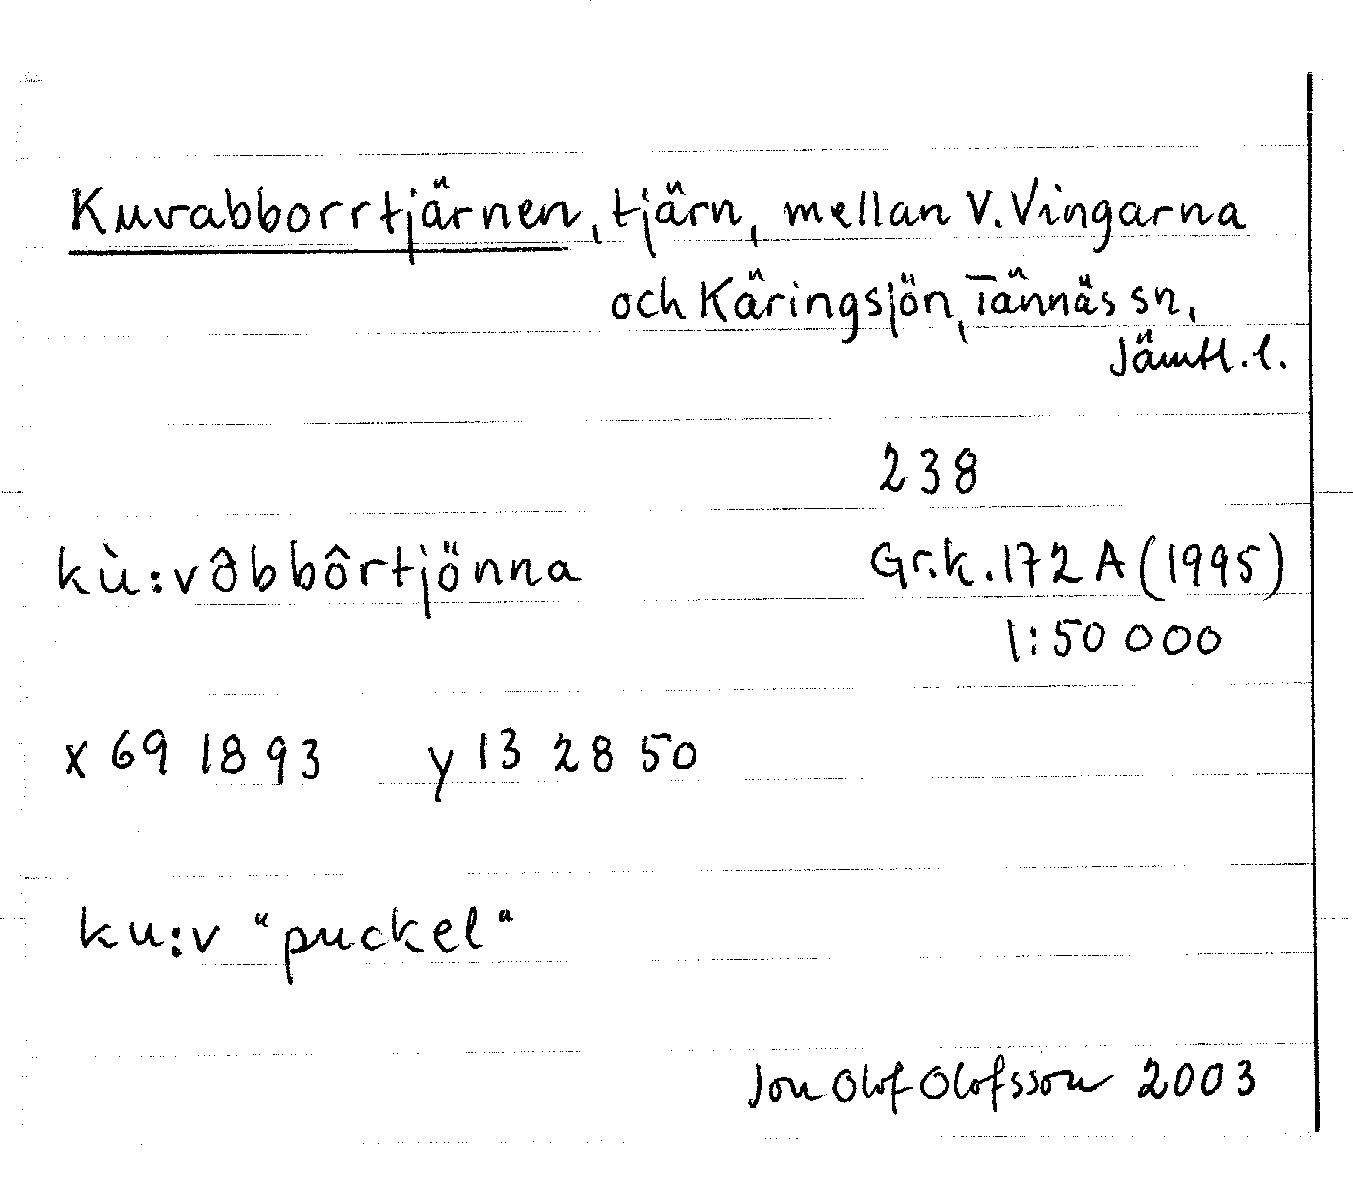 Kuvabborrtjärnen, tjärn, mellan V. Vingarna
och Käringsjön, Tännäs sn,
Jämtl. l.
238
kù:vðbbôrtjönna Gr.k. 172 A (1995)
1:50 000
x 69 18 93 y 13 28 50
ku:v "puckel"
Jon Olof Olofsson 2003